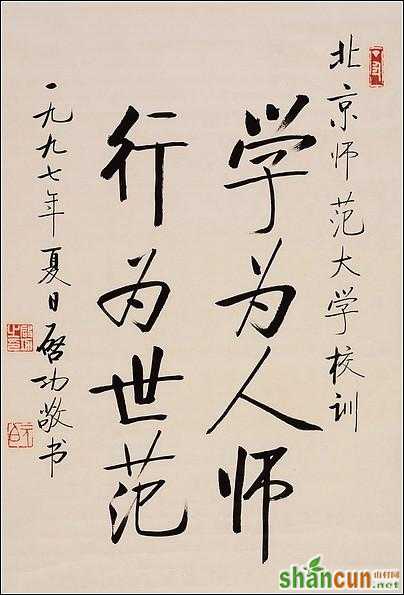 北京师范大学校训
学为人师
行为世范
一九九七年夏日启功敬书
shancun
山村网
.net